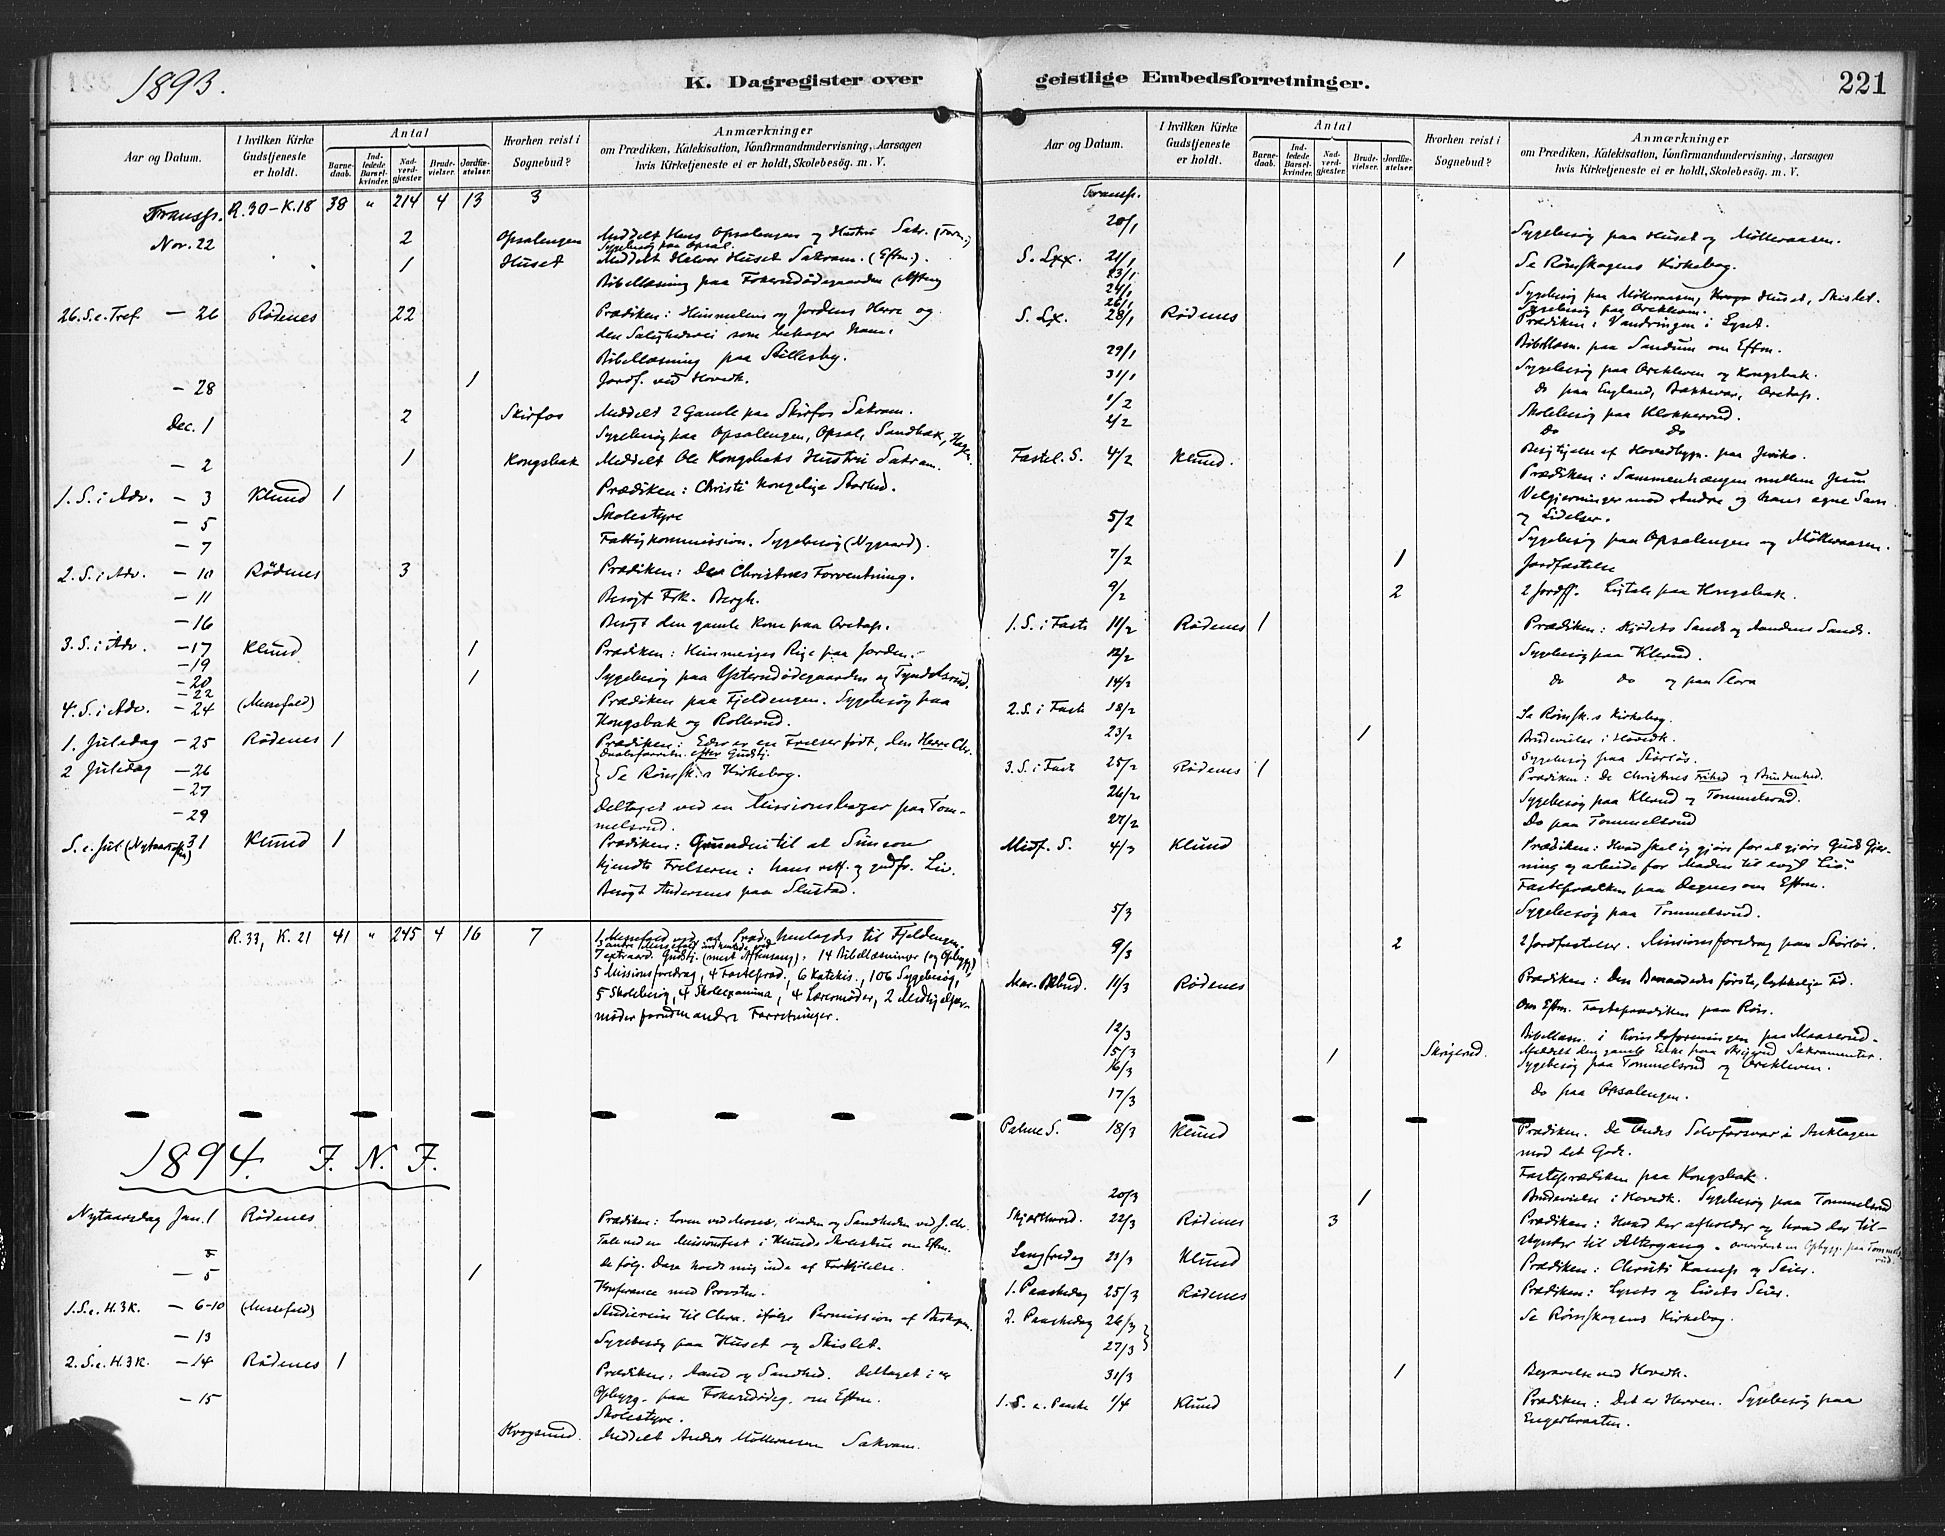 1893.
K. Dagregister over
Aar og Datum.
I hvilken Kirke Gudstjeneste er holdt.
Antal
Barnedaab.
Indledede Barselkvinder.
Nadverdgjester
Brudevielser
Jordfæstelser
Hvorhen reist i Sognebud?
Anmærkninger
om Prædiken, Katekisation, Konfirmandundervisning, Aarsagen
hvis Kirketjeneste ei er holdt, Skolebesög. m. V.
Transp. R.30-K.18 38 " 214 4 13 3
Nov. 22 2 Opsalengen Meddelt Hans Opsalengen og Hustru Sakr.
Sygebesøg paa Opsal.
1 Huset Meddelt Halvor Huset Sakram. (Eftm.).
Bibellæsning paa
26. S.e. Tref. – 26 Rødenes 22 Prædiken: Himmelens og Jordens Herre og
den Salighedsvei som behager ham.
Bibellæsning paa Stillesby.
– 28 1 Jordf. ved Hovedk.
Dec. 1 2 Skirfos Meddelt 2 Gamle paa Skirfos Sakram.
Sygebesøg paa Opsalengen, Opsal, Sandbæk,
– 2 1 Kongsbak Meddelt Ole Kongsbaks Hustru Sakram.
1. S. i Adv. – 3 Klund 1 Prædiken: Christi kongelige Storhed.
– 5 Skolestyre
– 7 Fattigkommission. Sygebesøg (Nygaard).
2. S. i Adv. – 10 Rødenes 3 Prædiken: Den Christnes Forventning.
– 11 Besøgt Frk. Bergh.
– 16 Besøgt den gamle Kone paa
3. S. i Adv. – 17 Klund 1 Prædiken: Himmeriges Rige paa Jorden.
– 19
– 20 1 Sygebesøg paa Ysterudødegaarden og Tyndelsrud.
– 22
4. S. i Adv. – 24 (Messefald) Prædiken paa Fjeldengen. Sygebesøg paa
Kongsbak og Rollerud.
1. Juledag – 25 Rødenes 1 Prædiken: Eder er en Frelser født, den Herre Chr.
efter Gudstj.
2 Juledag – 26 Se Rømsk.s Kirkebog.
– 27
– 29 Deltaget ved en Missionsbazar paa Tom-
melsrud.
S. e. Jul (Nytaarsaften) 31 Klund 1 Prædiken: Grunden til at Simeon
kjendte Frelseren: hans retf. og gudfr. Liv.
Besøgt Andersens paa Slustad.
R. 33, K. 21 41 " 245 4 16 7 1 Messefald ved at Præd. henlagdes til Fjeldengen.
7 extraord. Gudstj. (mest Aftensang), 14 Bibellæsninger (og Opbygg)
5 Missionsforedrag, 4 Fastepræd., 6 Katekis., 106 Sygebesøg,
5 Skolebesøg, 4 Skoleexamina, 4 Læremøder, 2 Medhjelper-
møder foruden andre Forretninger.
1894. I. N. J.
Nytaarsdag Jan. 1 Rødenes Prædiken: Loven ved Moses, Naaden og Sandheden ved J. Chr.
Tale ved en Missionsfest i Klunds Skolestue om Eftm.
de følg. Dage holdt mig inde af Forkjølelse.
– 5 1 Konferance med Provsten.
1. S. e. H. 3 K. – 6-10 (Messefald) Audiereise til Chra. ifølge Permission af Biskopen.
– 13 Sygebesøg paa Huset og Skislet.
2. S. e. H. 3 K. – 14 Rødenes 1 Prædiken: Aand og Sandhed. Deltaget i en
Opbygg. paa om Eftm.
– 15 Skolestyre.
Krogsund. Meddelt Anders Mølleraasen Sakram.
geistlige Embedsforretninger.
221
Aar og Datum.
I hvilken Kirke Gudstjeneste er holdt.
Antal
Barnedaab.
Indledede Barselkvinder.
Nadverdgjester
Brudevielser.
Jordfæstelser.
Hvorhen reist i Sognebud?
Anmærkninger
om Prædiken, Katekisation, Konfirmandundervisning, Aarsagen
hvis Kirketjeneste ei er holdt, Skolebesög. m. V.
Transp.
20/1 Sygebesøg paa Huset og Mølleraasen.
S. Lxx. 21/1 1 Se Rømskogens Kirkebog.
23/1
24/1 Sygebesøg paa Mølleraasen, Huset, Skislet.
26/1 Sygebesøg paa
S. Lx. 28/1 Rødenes Prædiken: Vandringen i Lyset.
Bibellæsn. paa Sandum om Eftm.
29/1 Sygebesøg paaØrekleven og Kongsbak.
31/1 Do paa England, Bakkevar,
1/2 Skolebesøg paa Klokkerrud.
2/2 Do Do
Fastel. S. 4/2 Klund. Besigtigelse af Hovedbygn. paa Jeriko.
Prædiken: Sammenhængen mellem Jesu
Velgjerninger mod Andre og hans egne Savn
og Lidelser.
5/2 Sygebesøg paa Opsalengen og Mølleraasen.
7/2 1 Jordfæstelse
9/2 2 2 Jordf. Ligtale paa Kongsbak.
1. S. i Faste 11/2 Rødenes 1 Prædiken: Kjødets Sands og Aandens Sands.
12/2 Sygebesøg paa Klerud.
14/2 Do Do og paa Slora
2. S. i Faste 18/2 Se Rømsk.s Kirkebog.
23/2 1 Brudevielse i Hovedk.
Sygebesøg paa Størløs.
3. S. i Faste 25/2 Rødenes 1 Prædiken: De Christnes Frihed og Bundenhed.
26/2 Sygebesøg paa Klerud og Tommelsrud.
27/2 Do paa Tommelsrud
Midf. S. 4/3 Klund Prædiken: Hvad skal jeg gjøre for at gjøre Guds Gjer-
ning og arbeide for Maden til evigt Liv?
Fasteprædiken paa Degnes om Eftm.
5/3 Sygebesøg paa Tommelsrud.
9/3 2 2 Jordfæstelser. Missionsforedrag paa Størløs.
Mar. Bebud. 11/3 Rødenes Prædiken: Den Benaadedes første, lykkelige Tid.
Om Eftm. Fasteprædiken paa Rørs.
12/3 Bibellæsn. i Kvindeforeningen paa Maaserud.
15/3 1 Skrigerud. Meddelt den gamle Enke paa Sakramenter.
16/3 Sygebesøg paa Tommelsrud og Ørekleven.
17/3 Do paa Opsalengen.
Palme S. 18/3 Klund Prædiken. De Ondes Selvforsvar i Anklagen
mod det Gode.
Fasteprædiken paa Kongsbak.
20/3 1 Brudevielse i Hovedk. Sygebesøg paa Tommelsrud
Skjærthorsd. 22/3 Rødenes 3 Prædiken: Hvad der afholder og hvad der til-
skynder til Altergang. Opbygg. paa Tommelsrud.
Langfredag 23/3 Klund Prædiken: Christi Kamp og Seier.
1. Paaskedag 25/3 Rødenes Prædiken: Lysets og Livets Seier.
2. Paaskedag 26/3 Se Rømskogens Kirkebog.
27/3
31/3 1 Begravelse ved Hovedk.
1. S. e. Paaske 1/4 Klund Prædiken: Det er Herren. Sygebesøg paa
Engerbraaten.